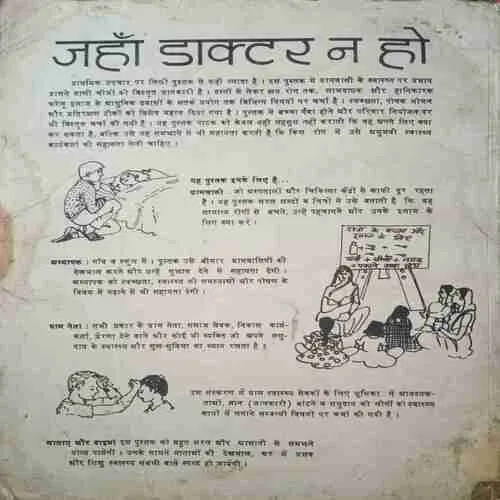 जहाँ डाक्टर न हो
प्राथमिक उपचार पर लिखी पुस्तक से कहीं ज्यादा है । इस पुस्तक में ग्रामवासी के स्वास्थ्य पर प्रभाव
डालने वाली चीजों की विस्तृत जानकारी है । दस्तों से लेकर क्षय रोग तक, लाभदायक और हानिकारक
घरेलू इलाज के आधुनिक दवाओं के सतर्क प्रयोग तक विभिन्न विषयों पर चर्चा है । स्वच्छता, पोषक भोजन
और प्रतिरक्षण टीकों को विशेष महत्व दिया गया है । पुस्तक में बच्चा पैदा होने और परिवार नियोजन पर
भी विस्तृत चर्चा की गयी है । यह पुस्तक पाठक को केवल यही महसूस नहीं कराती कि वह अपने लिए क्या
कर सकता है, बल्कि उसे यह समझने में भी सहायता करती है कि किस रोग में उसे अनुभवी स्वास्थ्य
कार्यकर्ता की सहायता लेनी चाहिए ।
यह पुस्तक इनके लिए है...
ग्रामवासी जो अस्पतालों और चिकित्सा केंद्रों से काफी दूर रहता
है । यह पुस्तक सरल शब्दों व चित्रों में उसे बताती है कि वह
सामान्य रोगों से बचने, उन्हें पहचानने और उनके इलाज के
लिए क्या करे ।
अध्यापक : गाँव व स्कूल में । पुस्तक उसे बीमार ग्रामवासियों की
देखभाल करने और उन्हें सुझाव देने में सहायता देगी ।
अध्यापक को स्वच्छता, स्वास्थ्य की समस्याओं और पोषण के
विषय में पढ़ाने में भी सहायता देगी ।
ग्राम नेता : सभी प्रकार के ग्राम नेता, समाज सेवक, विकास कार्य-
कर्ता, प्रेरणा देने वाले और कोई भी व्यक्ति जो अपने समु-
दाय के स्वास्थ्य और सुख-सुविधा का ध्यान रखता है ।
इस संस्करण में ग्राम स्वास्थ्य सेवकों के लिए भूमिका, में आवश्यक-
ताओं, ज्ञान (जानकारी) बांटने व समुदाय की लोगों को स्वास्थ्य
कार्यों में लगाने सम्बन्धी विषयों पर चर्चा की गयी है ।
माताएं और दाइयां इस पुस्तक को बहुत सरल और आसानी से समझने
योग्य पायेंगी । उनके सामने माताओं की देखभाल, घर में प्रसव
और शिशु स्वास्थ्य संबंधी बातें स्पष्ट हो जायेंगी ।